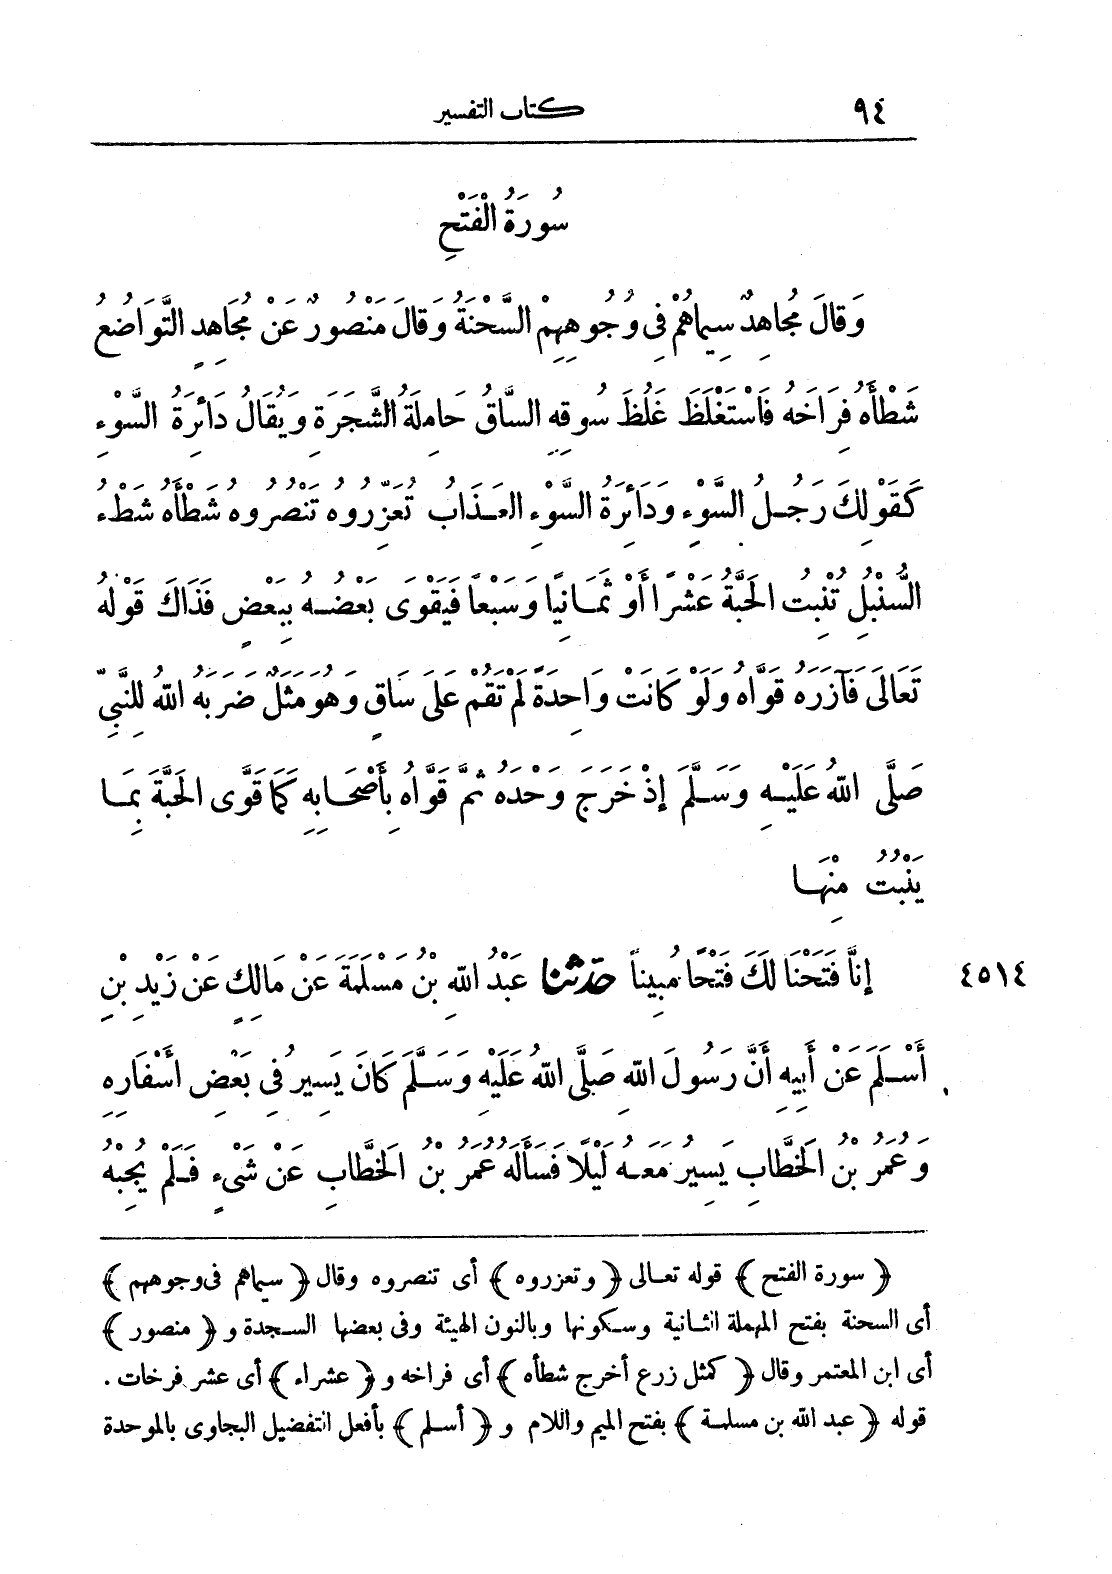 ٩٤
كتاب التفسير
سُورَةُ الْفَتْحِ
وَقَالَ مُجَاهِدٌ سِيمَاهُمْ فِى وُجُوهِهِمْ السَّحْنَةُ وَقَالَ مَنْصُورٌ عَنْ مُجَاهِدٍ التَّوَاضُعُ
شَطْأَهُ فِرَاخَهُ فَاسْتَغْلَظَ غَلُظَ سُوقِهِ السَّاقُ حَامِلَةُ الشَّجَرَةِ وَيُقَالُ دَائِرَةُ السَّوْءِ
كَقَوْلِكَ رَجُلُ السَّوْءِ وَدَائِرَةُ السَّوْءِ العَذَابُ تُعَزِّرُوهُ تَنْصُرُوهُ شَطْأَهُ شَطْءُ
السُّنْبُلِ تُنْبِتُ الحَبَّةُ عَشْرًا أَوْ ثَمَانِيًا وَسَبْعًا فَيَقْوَى بَعْضُهُ بِبَعْضٍ فَذَاكَ قَوْلُهُ
تَعَالَى فَآزَرَهُ قَوَّاهُ وَلَوْ كَانَتْ وَاحِدَةً لَمْ تَقُمْ عَلَى سَاقٍ وَهُوَ مَثَلٌ ضَرَبَهُ اللهُ لِلنَّبِىِّ
صَلَّى اللهُ عَلَيْهِ وَسَلَّمَ إِذْ خَرَجَ وَحْدَهُ ثُمَّ قَوَّاهُ بِأَصْحَابِهِ كَمَا قَوَّى الحَبَّةَ بِمَا
يَنْبُتُ مِنْهَا
٤٥١٤ إِنَّا فَتَحْنَا لَكَ فَتْحًا مُبِينًا حدّثنا عَبْدُ اللهِ بْنُ مَسْلَمَةَ عَنْ مَالِكٍ عَنْ زَيْدِ بْنِ
أَسْلَمَ عَنْ أَبِيهِ أَنَّ رَسُولَ اللهِ صَلَّى اللهُ عَلَيْهِ وَسَلَّمَ كَانَ يَسِيرُ فِى بَعْضِ أَسْفَارِهِ
وَعُمَرُ بْنُ الخَطَّابِ يَسِيرُ مَعَهُ لَيْلًا فَسَأَلَهُ عُمَرُ بْنُ الخَطَّابِ عَنْ شَىْءٍ فَلَمْ يُجِبْهُ
﴿سورة الفتح﴾ قوله تعالى ﴿وتعزروه﴾ أى تنصروه وقال ﴿سيماهم فى وجوههم﴾
أى السحنة بفتح المهملة الثانية وسكونها وبالنون الهيئة وفى بعضها السجدة و﴿منصور﴾
أى ابن المعتمر وقال ﴿كمثل زرع أخرج شطأه﴾ أى فراخه و﴿عشراء﴾ أى عشر فرخات .
قوله ﴿عبد الله بن مسلمة﴾ بفتح الميم واللام و﴿أسلم﴾ بأفعل التفضيل البجاوى بالموحدة